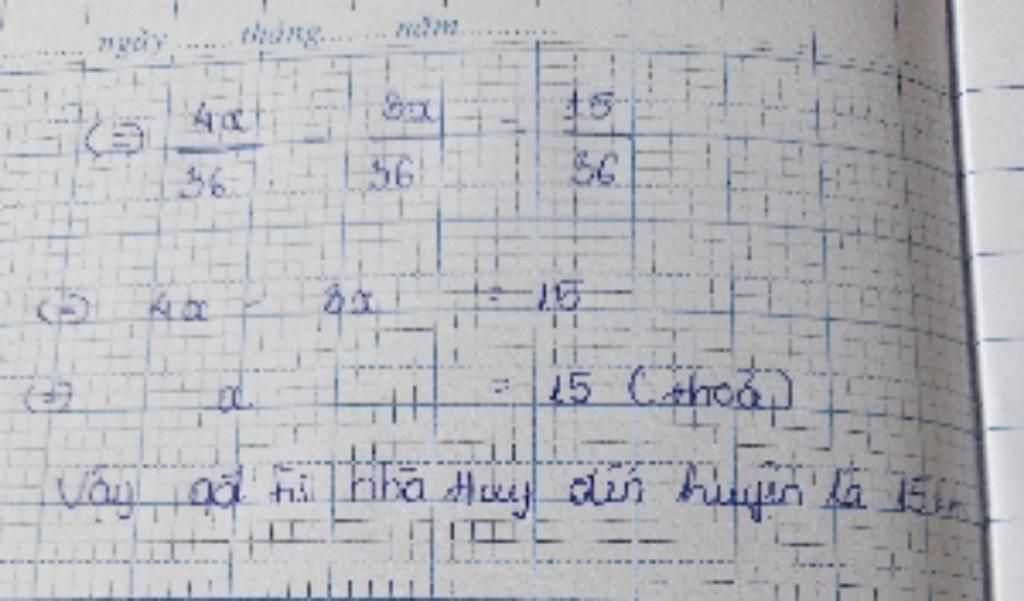 ngày ...... tháng ...... năm ............
(=) 4x/36 - 3x/36 = 15/36
(=) 4x - 3x = 15
(=) x = 15 (thoả)
Vậy qđ từ nhà Huy đến huyện là 15km